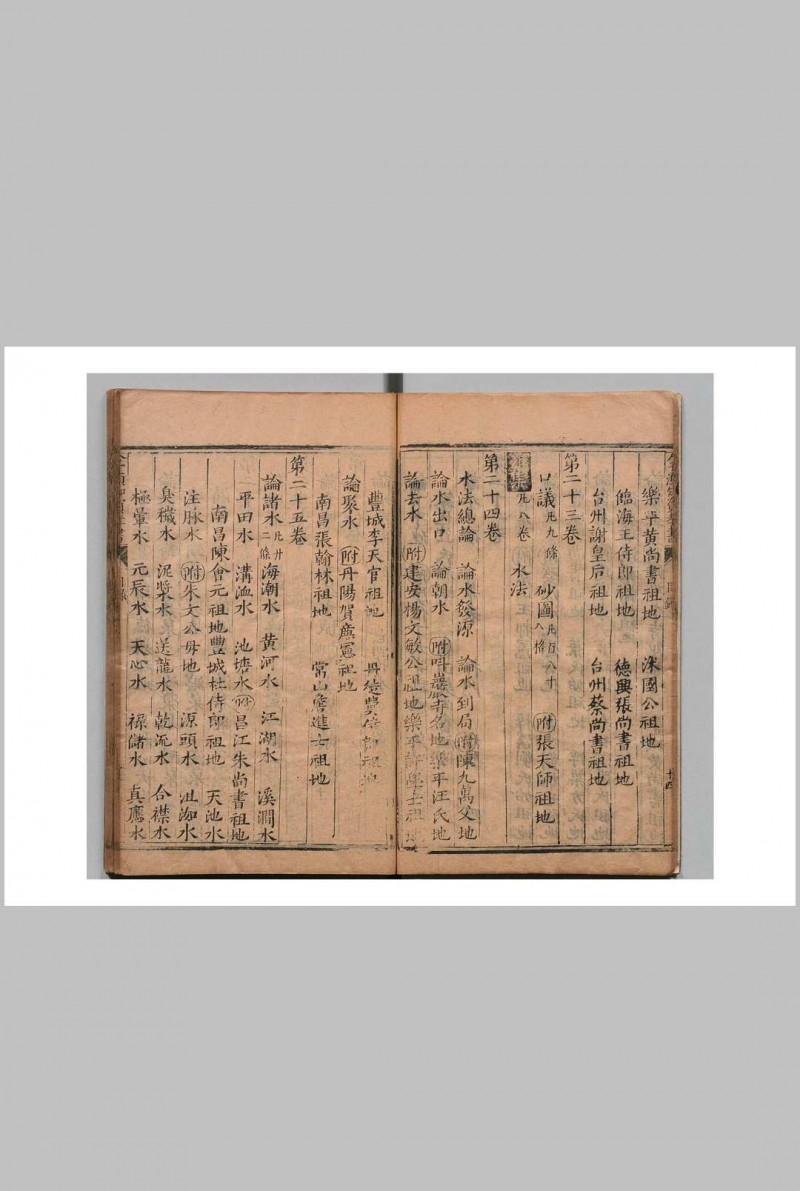 樂平黃尚書祖地 涞國公祖地
臨海王侍郎祖地 德興張尚書祖地
台州謝皇后祖地 台州蔡尚書祖地
第二十三卷
口議凡九條 砂圖凡百八十八條 附張天師祖地
集凡八卷 水法
第二十四卷
水法總論 論水發源 論水到局附陳九萬父地
論水出口 論朝水 附 巖寺名地樂平汪氏地
論去水 附建安楊文敏公祖地樂平許學士祖地
豐城李天官祖地 丹徒
論聚水 附丹陽賀 祖地
南昌張翰林祖地 常山詹進士祖地
第二十五卷
論諸水凡廿二條 海潮水 黃河水 江湖水 溪澗水
平田水 溝洫水 池塘水附呂江朱尚書祖地
南昌陳會元祖地豐城杜侍郎祖地 天池水
注脉水 附朱文公母地 源頭水 沮洳水
臭穢水 泥漿水 送龍水 乾流水 合襟水
極暈水 元辰水 天心水 祿儲水 真應水